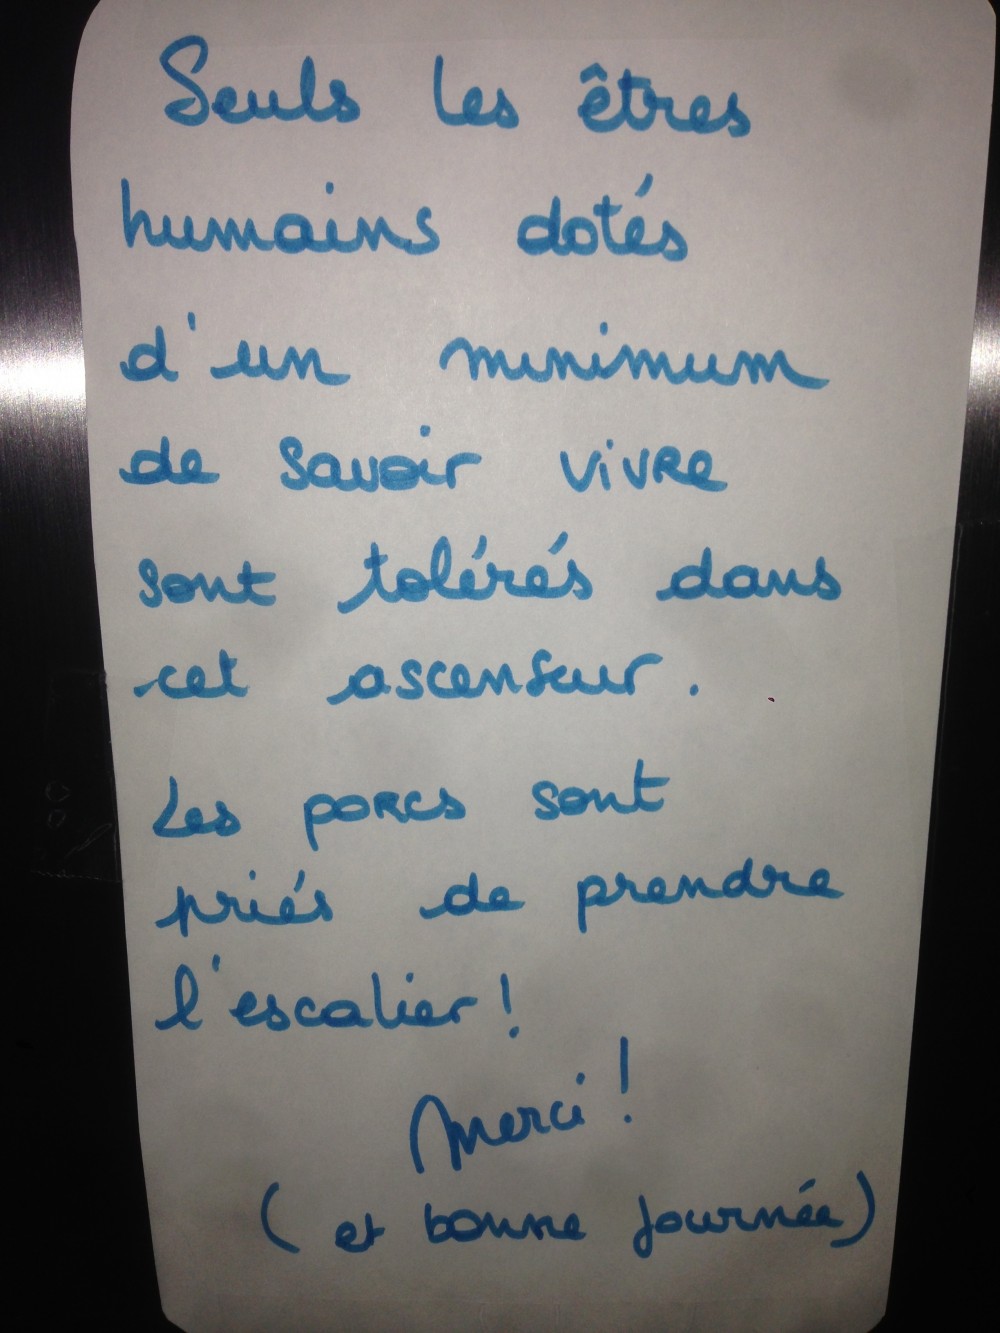 Seuls les êtres
humains dotés
d'un minimum
de savoir vivre
sont tolérés dans
cet ascenseur.
Les porcs sont
priés de prendre
l'escalier !
Merci !
(et bonne journée)